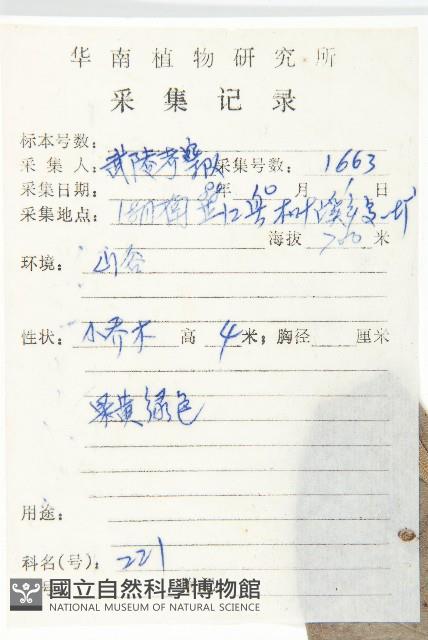 华南植物研究所
采集记录
标本号数:
采集人: 武陵考察队 采集号数: 1663
采集日期: 年 月 日
采集地点:
海拔 700 米
环境: 山谷
性状: 小乔木 高 4 米; 胸径 厘米
果黄绿色
用途:
科名(号): 221
國立自然科學博物館
NATIONAL MUSEUM OF NATURAL SCIENCE